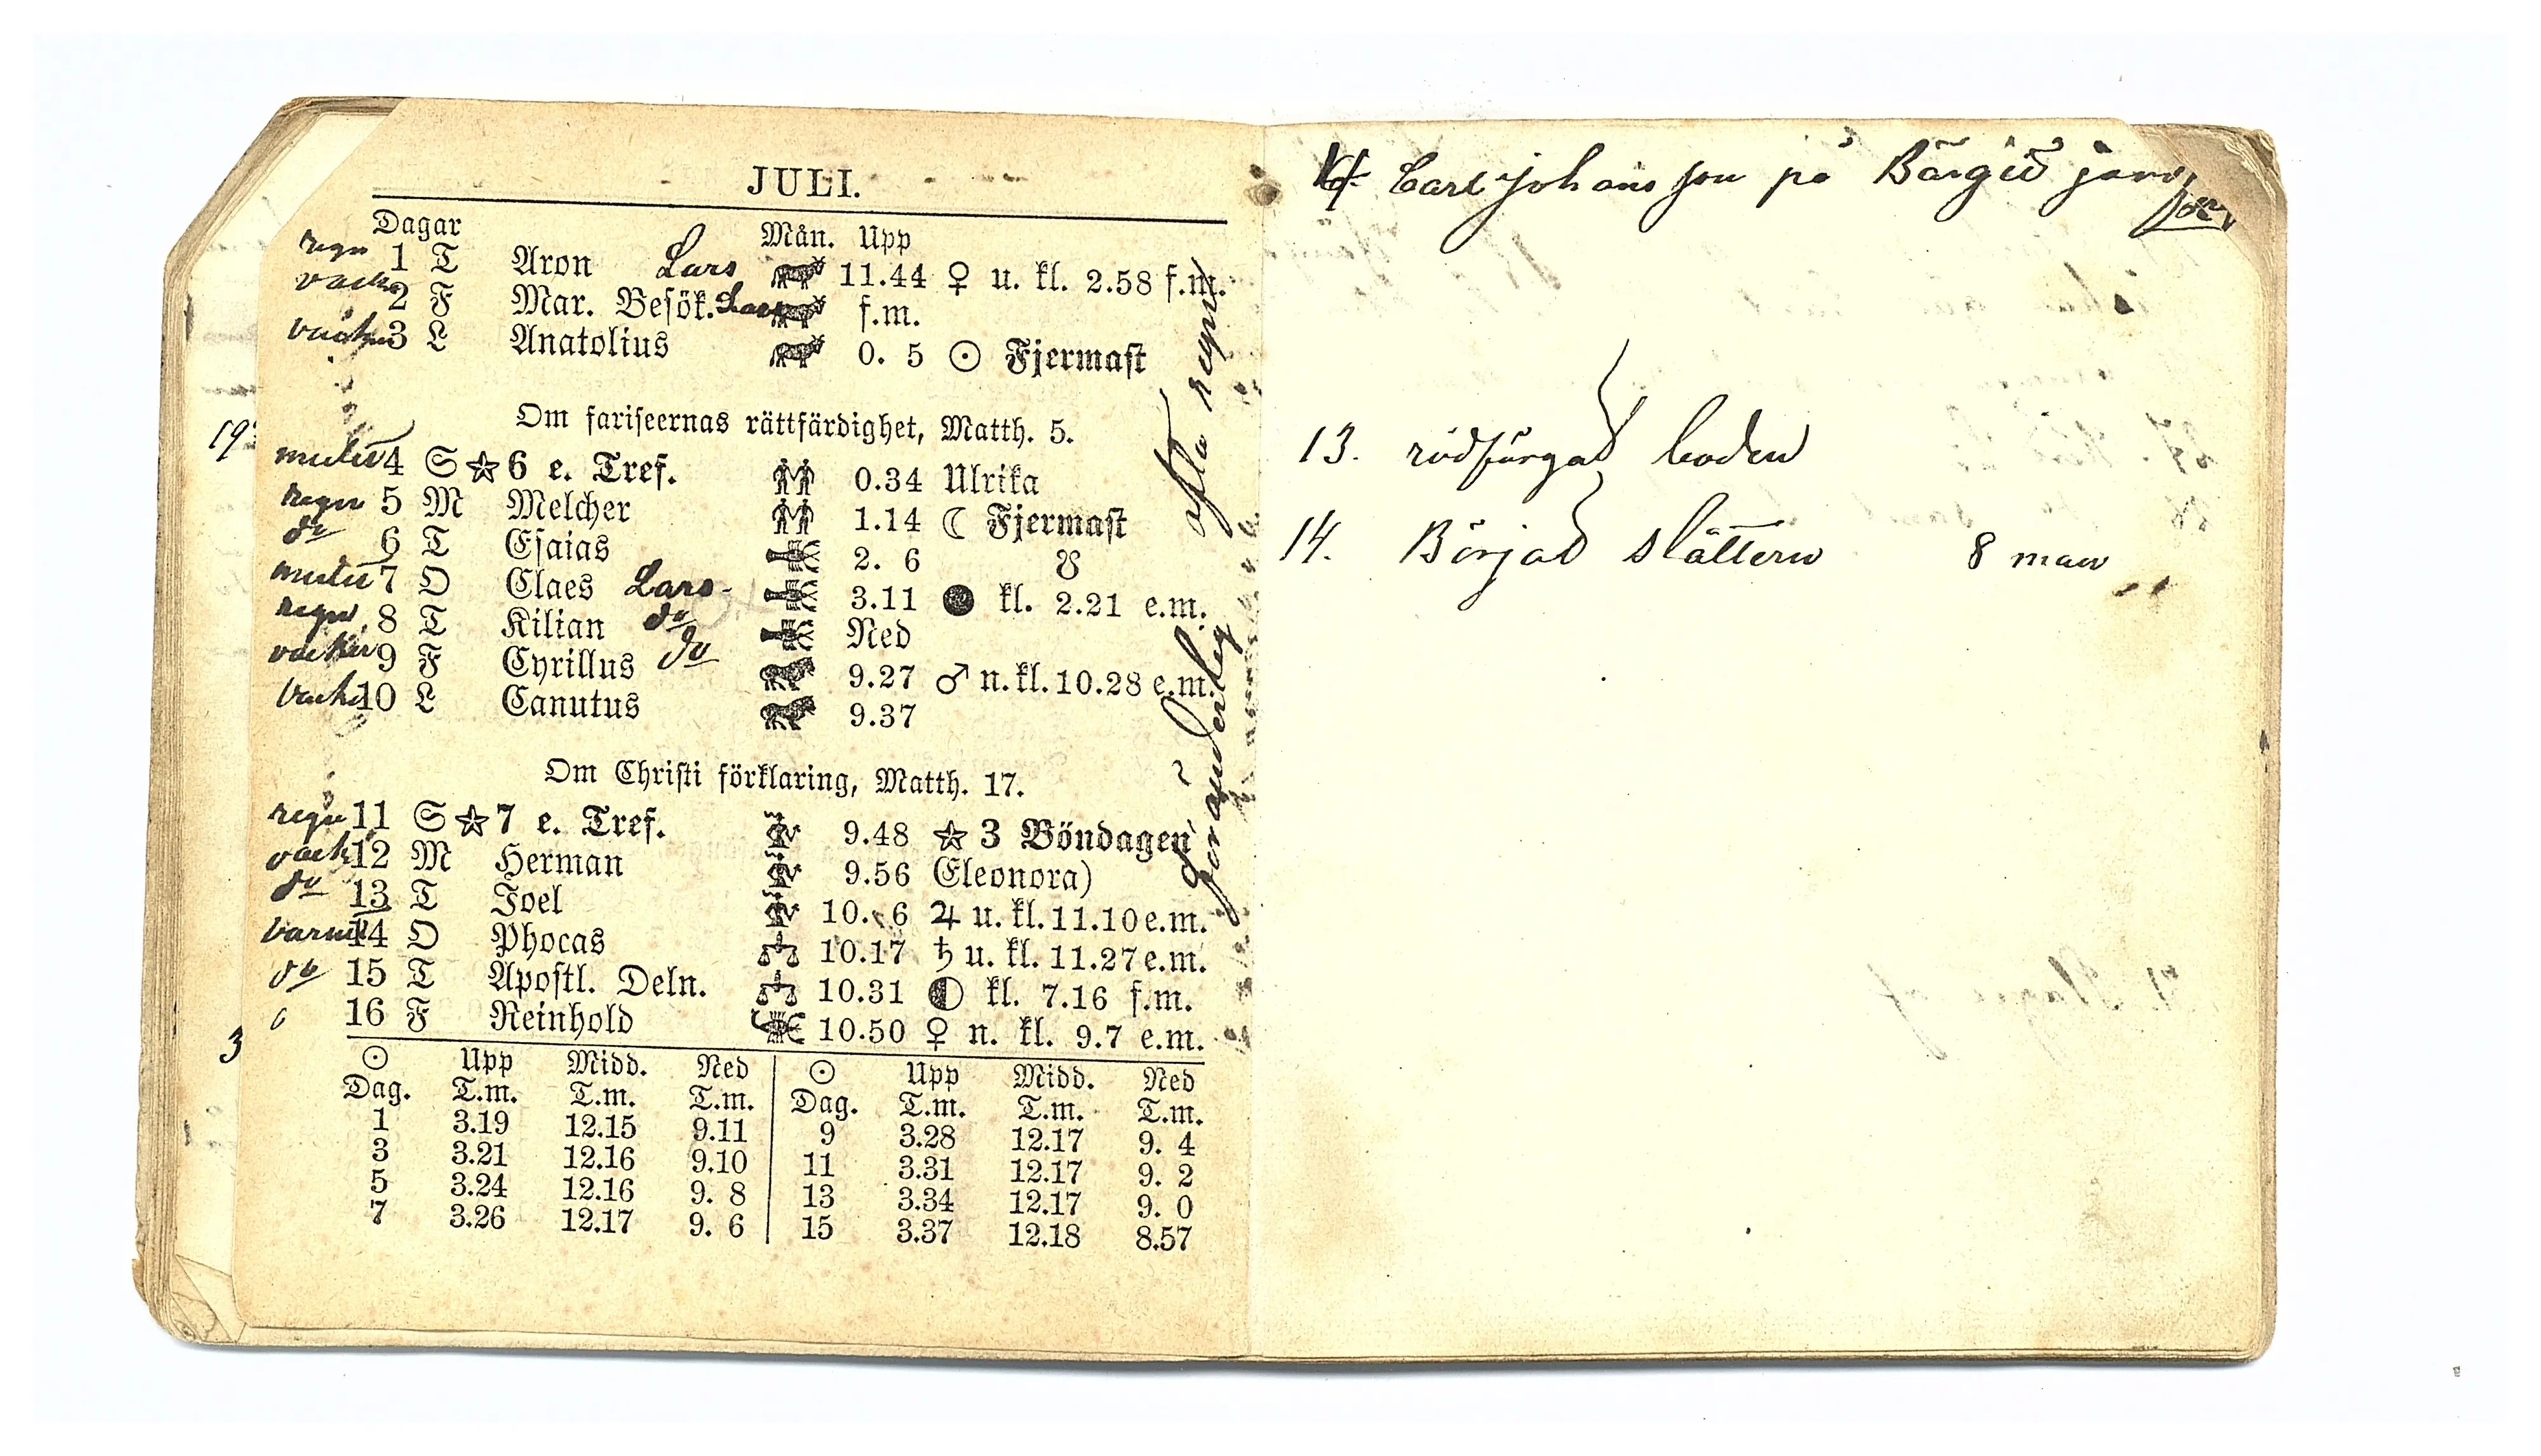 JULI.
Dagar Mån. Upp
regn 1 T Aron Lars 11.44 ♀ u. kl. 2.58 f.m.
vack 2 F Mar. Besök. Lars f.m.
vacker 3 L Anatolius 0. 5 ☉ Fjermast
Om fariseernas rättfärdighet, Matth. 5.
19
mulet 4 S ☆ 6 e. Tref. 0.34 Ulrika
regn 5 M Melcher 1.14 ☾ Fjermast
do 6 T Esaias 2. 6 ☋
mulet 7 O Claes Lars 3.11 ● kl. 2.21 e.m.
regn 8 T Kilian do Ned
vacker 9 F Cyrillus do 9.27 ♂ n. kl. 10.28 e.m.
vacker 10 L Canutus 9.37
Om Christi förklaring, Matth. 17.
regn 11 S ☆ 7 e. Tref. 9.48 ☆ 3 Böndagen
vack 12 M Herman 9.56 Eleonora)
do 13 T Joel 10. 6 ♃ u. kl. 11.10 e.m.
varmt 14 O Phocas 10.17 ♄ u. kl. 11.27 e.m.
do 15 T Apostl. Deln. 10.31 ◐ kl. 7.16 f.m.
16 F Reinhold 10.50 ♀ n. kl. 9.7 e.m.
3
☉ Upp Midd. Ned ☉ Upp Midd. Ned
Dag. T.m. T.m. T.m. Dag. T.m. T.m. T.m.
1 3.19 12.15 9.11 9 3.28 12.17 9. 4
3 3.21 12.16 9.10 11 3.31 12.17 9. 2
5 3.24 12.16 9. 8 13 3.34 12.17 9. 0
7 3.26 12.17 9. 6 15 3.37 12.18 8.57
föränderlig ofta regn
Carl Johansson på
13. rödfärgad boden
14. Börjad slåttern 8 man